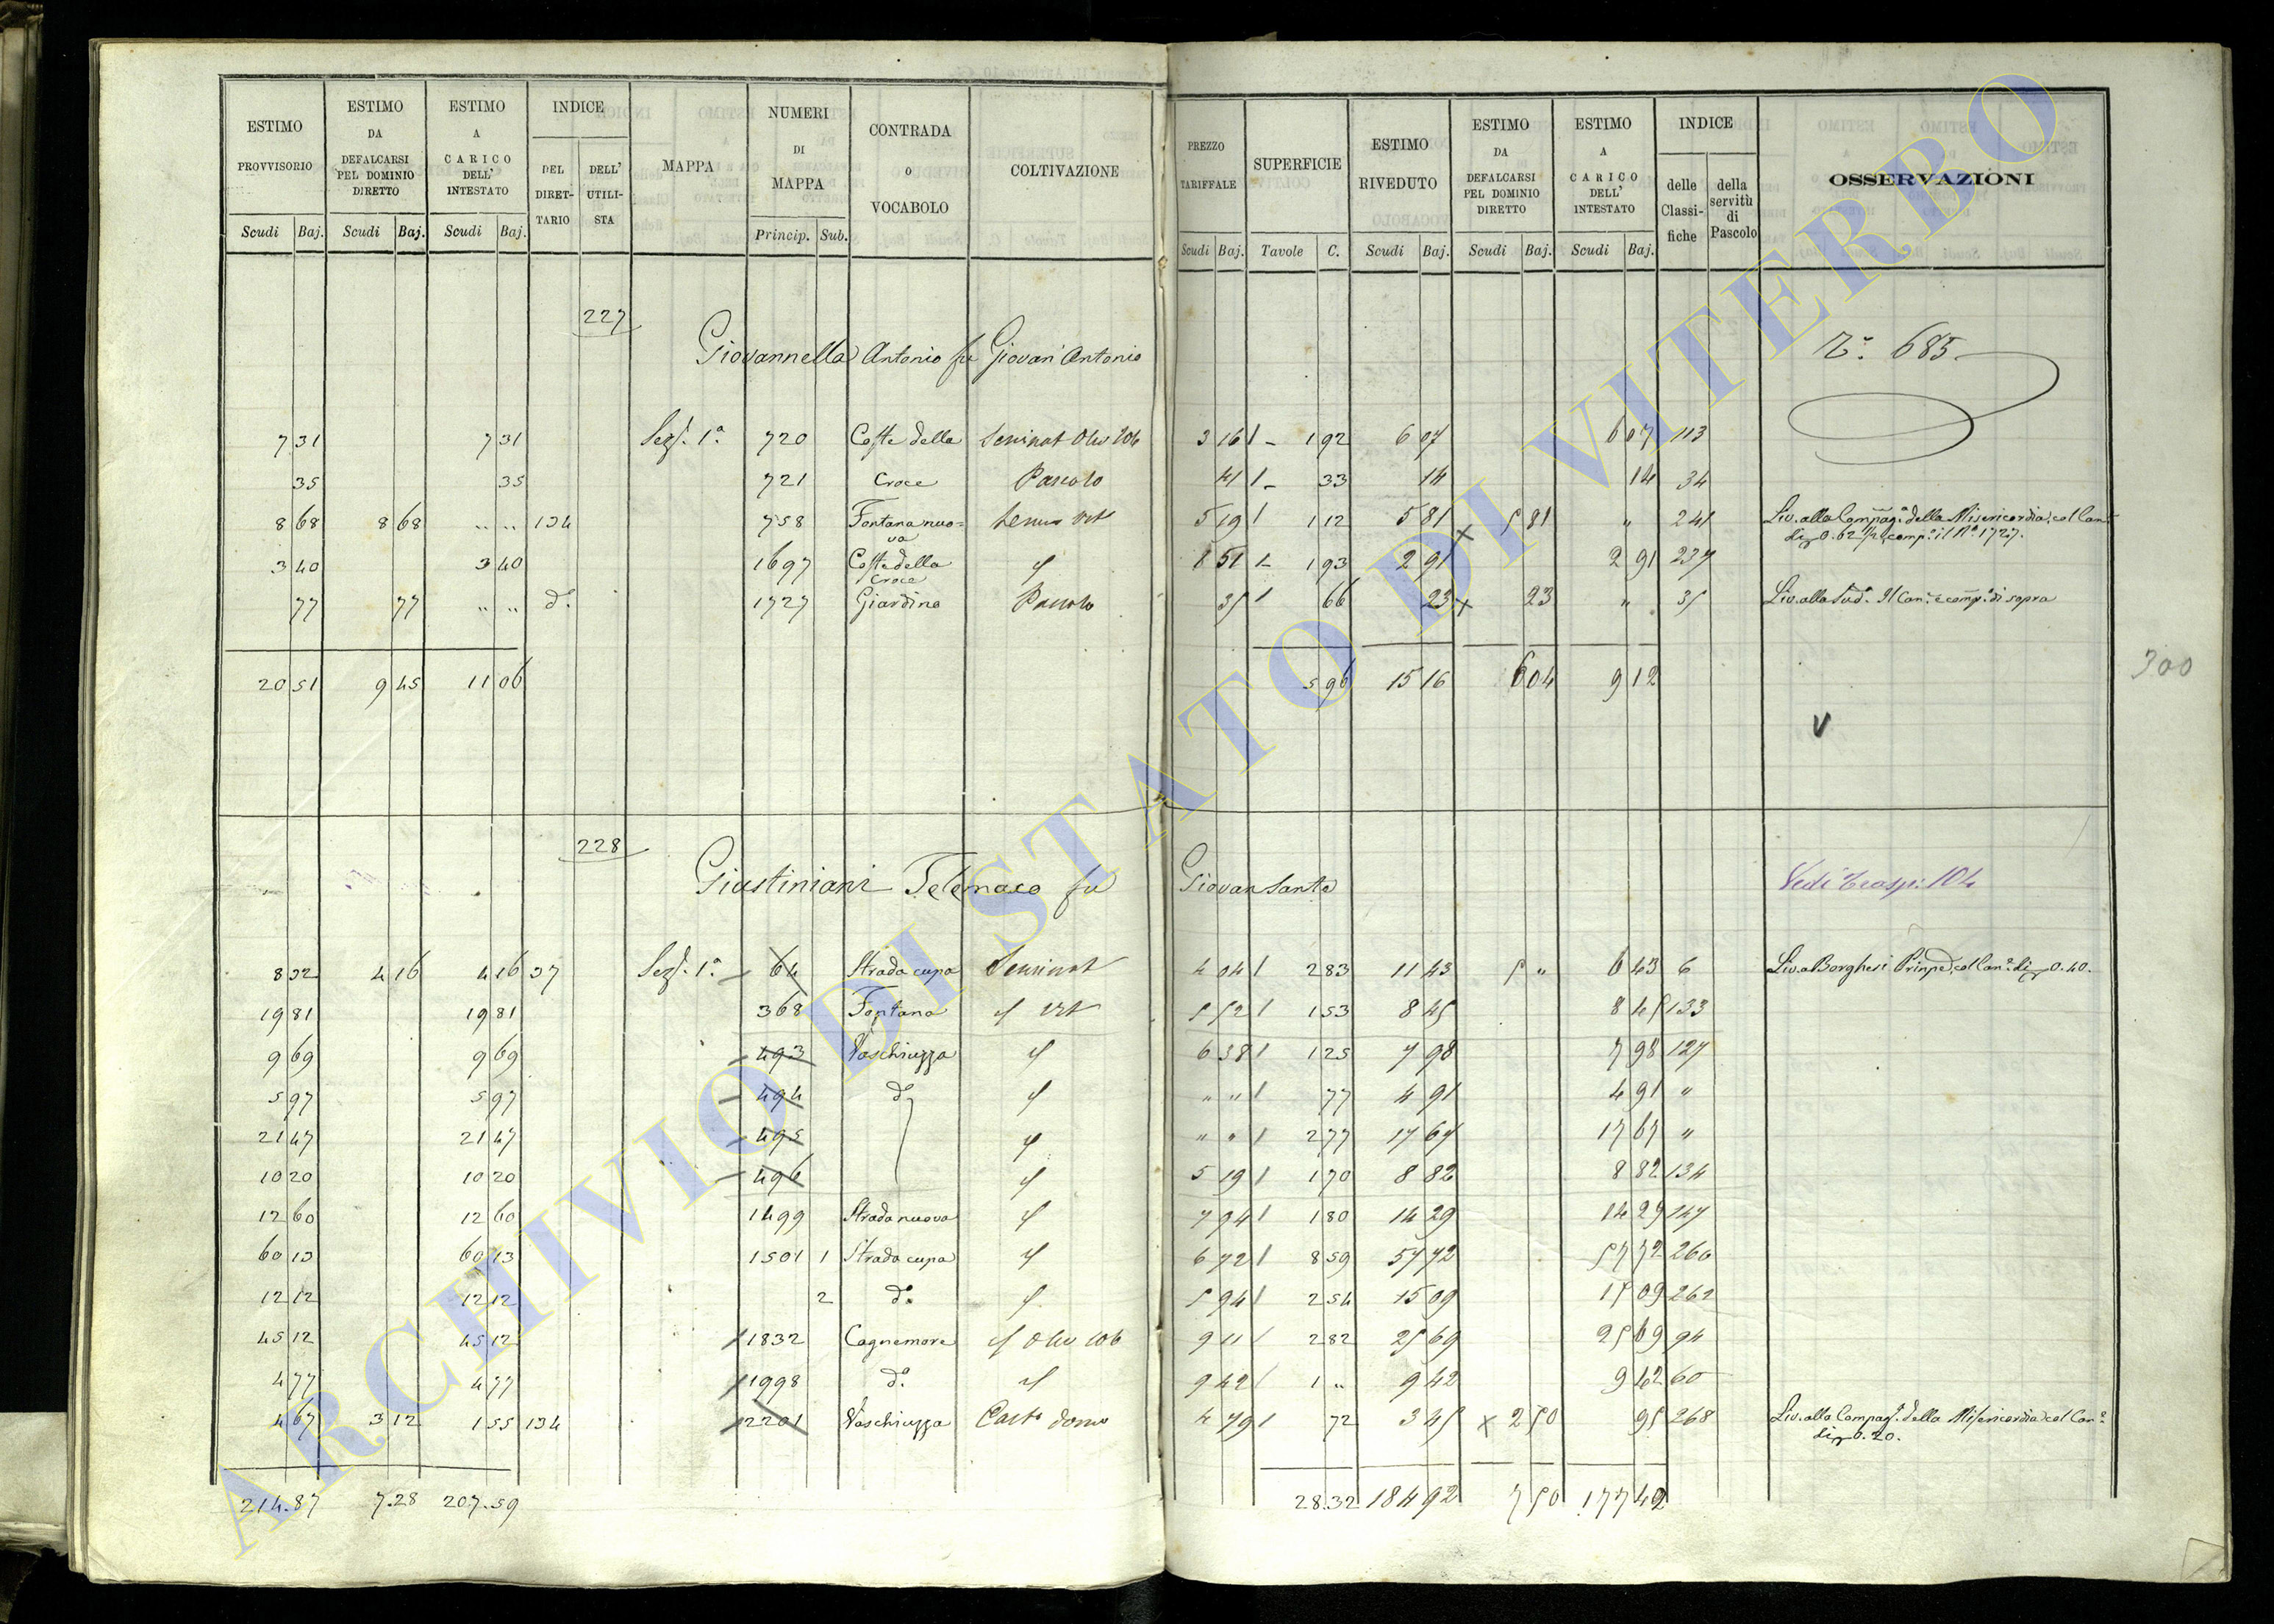 ESTIMO PROVVISORIO | ESTIMO DA DEFALCARSI PEL DOMINIO DIRETTO | ESTIMO A CARICO DELL' INTESTATO | INDICE | MAPPA | NUMERI DI MAPPA | CONTRADA o VOCABOLO | COLTIVAZIONE | PREZZO TARIFFALE | SUPERFICIE | ESTIMO RIVEDUTO | ESTIMO DA DEFALCARSI PEL DOMINIO DIRETTO | ESTIMO A CARICO DELL' INTESTATO | INDICE | OSSERVAZIONI
DEL DIRETTARIO | DELL' UTILISTA | delle Classifiche | della servitù di Pascolo
Scudi Baj. | Scudi Baj. | Scudi Baj. | Princip. Sub. | Scudi Baj. | Tavole C. | Scudi Baj. | Scudi Baj. | Scudi Baj.
227
Giovannella Antonio fu Giovan Antonio | 685
7 31 | 7 31 | Sezᵉ. 1ª | 720 | Coste della | Seminat Oliv | 3 16 | 1 92 | 6 07 | 6 07 | 113
35 | 35 | 721 | Croce | Pascolo | 41 | 33 | 14 | 14 | 34
8 68 | 8 68 | " " | 134 | 758 | Fontana nuova | Semin Vit | 5 19 | 1 12 | 5 81 | × 5 81 | " | 241 | Liv. alla Compagª. della Misericordia, col Can
di 0.62 ½ comp. il Nº 1727.
3 40 | 3 40 | 1697 | Coste della Croce | 1 51 | 1 93 | 2 91 | 2 91 | 237
77 | 77 | " " | dº. | 1727 | Giardino | Pascolo | 35 | 66 | 23 | × 23 | " | 35 | Liv. alla Sudª. Il Can. è comp. di sopra
20 51 | 9 45 | 11 06 | 5 96 | 15 16 | 6 04 | 9 12
300
V
228
Giustiniani Telemaco fu Giovan Santo | Vedi trasp: 104
8 32 | 4 16 | 4 16 | 37 | Sezᵉ. 1ª | 64 | Strada cupa | Seminat | 4 04 | 2 83 | 11 43 | 5 " | 6 43 | 6 | Liv. a Borghesi Principe, col Canᵉ. di 0.40.
19 81 | 19 81 | 368 | Fontana | Vit | 5 52 | 1 53 | 8 45 | 8 45 | 133
9 69 | 9 69 | 493 | Vaschiuzza | 6 38 | 1 25 | 7 98 | 7 98 | 127
5 97 | 5 97 | 494 | dº | " " | 77 | 4 91 | 4 91 | "
21 47 | 21 47 | 495 | " " | 2 77 | 17 67 | 17 67 | "
10 20 | 10 20 | 496 | 5 19 | 1 70 | 8 82 | 8 82 | 134
12 60 | 12 60 | 1499 | Strada nuova | 7 94 | 1 80 | 14 29 | 14 29 | 147
60 13 | 60 13 | 1501 | 1 | Strada cupa | 6 72 | 8 59 | 57 72 | 57 72 | 260
12 12 | 12 12 | 2 | dº. | 5 94 | 2 54 | 15 09 | 15 09 | 262
45 12 | 45 12 | 1832 | Cagnemore | Oliv | 9 11 | 2 82 | 25 69 | 25 69 | 94
4 77 | 4 77 | 1998 | dº. | 9 42 | 1 " | 9 42 | 9 42 | 60
4 67 | 3 12 | 1 55 | 134 | 2201 | Vaschiuzza | Casta domº | 4 79 | 72 | 3 45 | × 2 50 | 95 | 268 | Liv. alla Compagª. della Misericordia, col Canᵉ.
di 0.20.
214.87 | 7.28 | 207.59 | 28.32 | 184 92 | 7 50 | 177 42
ARCHIVIO DI STATO DI VITERBO